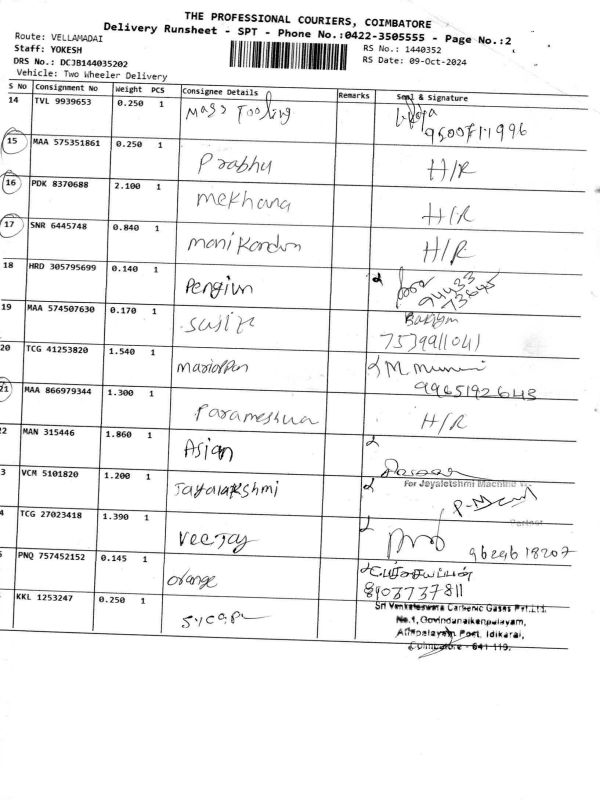 THE PROFESSIONAL COURIERS, COIMBATORE
Delivery Runsheet - SPT - Phone No.:0422-3505555 - Page No.:2
Route: VELLAMADAI
RS No.: 1440352
Staff: YOKESH
RS Date: 09-Oct-2024
DRS No.: DCJB144035202
Vehicle: Two Wheeler Delivery
S No Consignment No Weight PCS Consignee Details Remarks Seal & Signature
14 TVL 9939653 0.250 1 Mass Tooling
15 MAA 575351861 0.250 1 Prabhu H/R
16 PDK 8370688 2.100 1 mekhana H/R
17 SNR 6445748 0.840 1 manikandan H/R
18 HRD 305795699 0.140 1 Pengiun 94433 73645
19 MAA 574507630 0.170 1
7539911041
20 TCG 41253820 1.540 1 mariappan M muni
9965192643
21 MAA 866979344 1.300 1 Parameshwa H/R
2 MAN 315446 1.860 1 Asian
3 VCM 5101820 1.200 1 Jayalakshmi For Jeyaletshmi Machine
4 TCG 27023418 1.390 1 Veejay 9629618207
PNQ 757452152 0.145 1 orange
8903737811
KKL 1253247 0.250 1
Sri Venkateswara Carbonic Gases Pvt.Ltd.
No.1, Govindanaikenpalayam,
Athipalayam Post, Idikarai,
Coimbatore - 641 119.